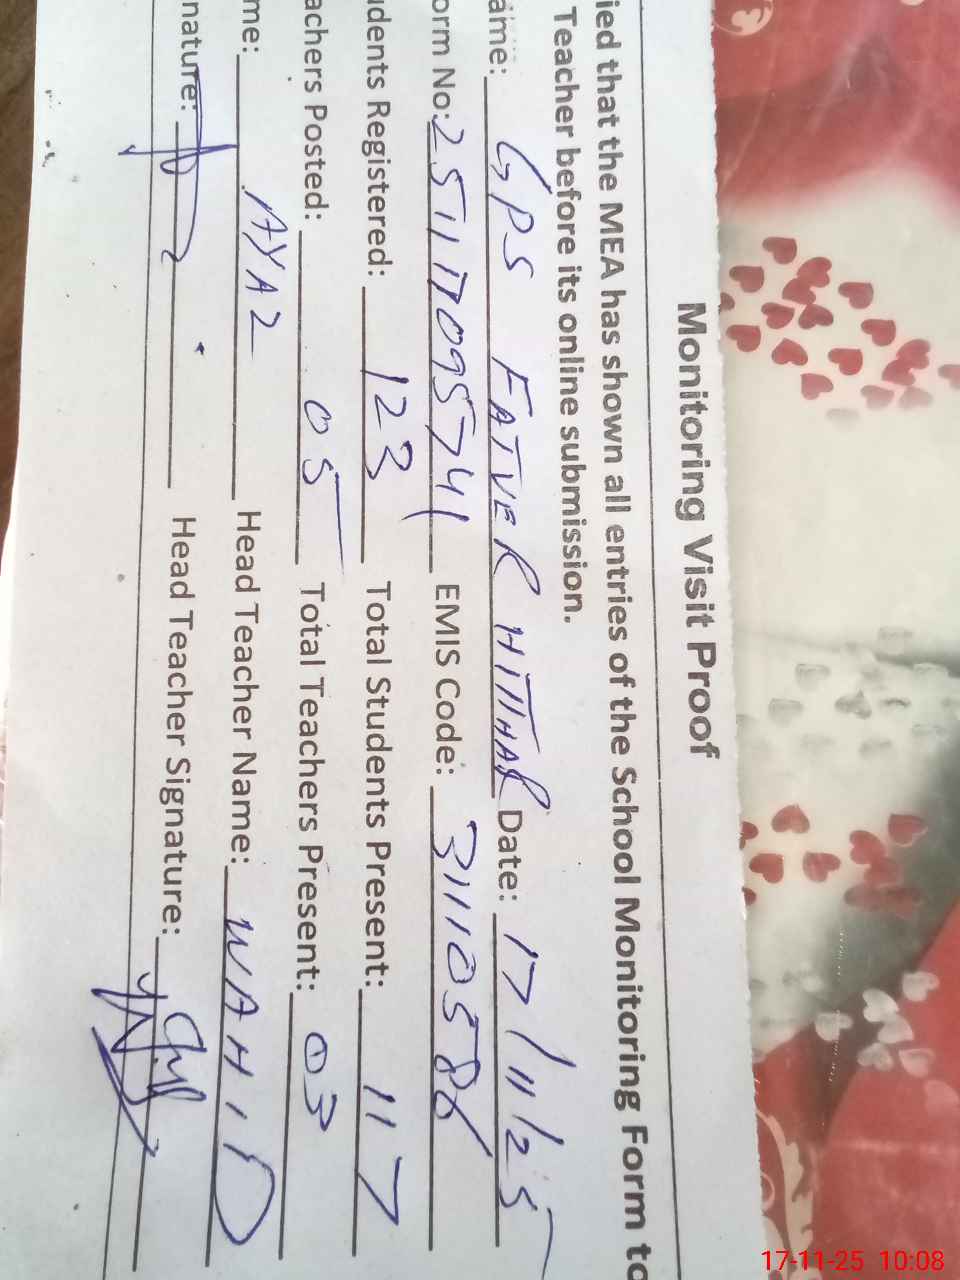 Monitoring Visit Proof
ied that the MEA has shown all entries of the School Monitoring Form to
Teacher before its online submission.
ame: GPS FATVER HITHAR Date: 17/11/25
orm No: 25111709574 EMIS Code: 31110586
udents Registered: 123 Total Students Present: 117
achers Posted: 05 Total Teachers Present: 03
me: AYAZ Head Teacher Name: WAHID
nature: Head Teacher Signature:
17-11-25 10:08